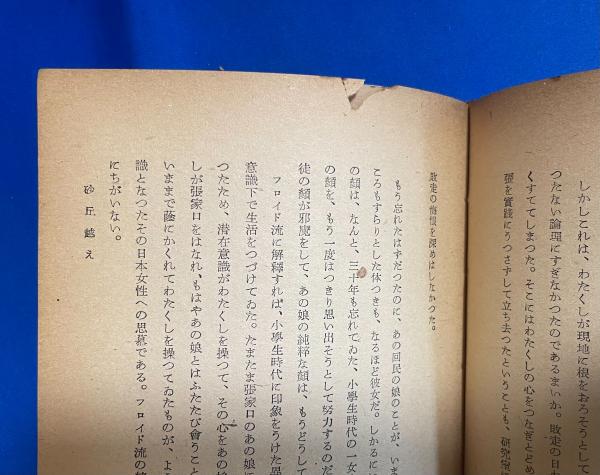 しかしこれは、わたくしが現地に根をおろそうとして
つたない論理にすぎなかつたのであるまいか。敗走の日
くすててしまつた。そこにはわたくしの心をつなぎとめ
張を實踐にうつさずして立ち去つたということも、研究
敗走の悔恨を深めはしなかつた。
もう忘れたはずだつたのに、あの回民の娘のことが、いま
ころもすらりとした体つきも、なるほど彼女だ。しかるに
の顔は、なんと、三十年も忘れてゐた、小學生時代の一女
の顔を、もう一度はつきり思い出そうとして努力するのだ
徒の顔が邪魔をして、あの娘の純粋な顔は、もうどうして
フロイド流に解釋すれば、小學生時代に印象をうけた異
意識下で生活をつづけてゐた。たまたま張家口のあの娘
つたため、潜在意識がわたくしを操つて、その心をあの
しが張家口をはなれ、もはやあの娘とはふたたび會うこと
いままで蔭にかくれてわたくしを操つてゐたものが、よう
識となつたその日本女性への思慕である。フロイド流の
にちがいない。
砂丘越え